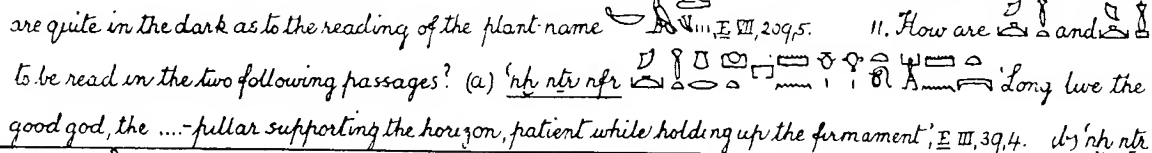 are quite in the dark as to the reading of the plant-name , E VII, 209,5. 11. How are and
to be read in the two following passages? (a) ꜥnḫ nṯr nfr 'Long live the
good god, the ....-pillar supporting the horizon, patient while holding up the firmament', E III, 39,4. (b) ꜥnḫ nṯr